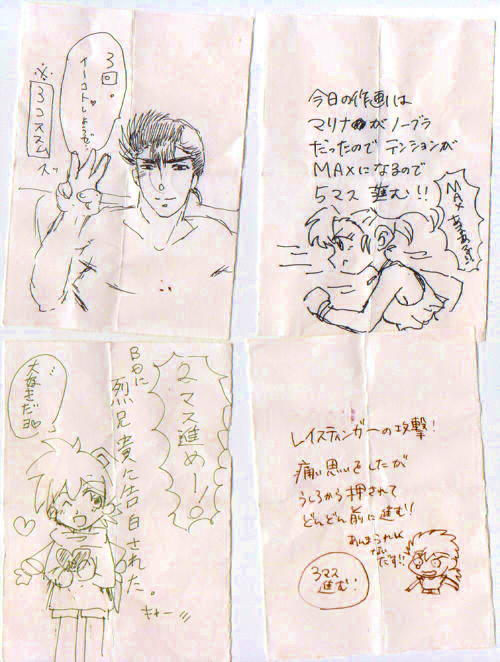 3回。
イーコトしようぜ
※
3コススム
今日の作画は
マリナがノーブラ
だったので テンションが
MAXになるので
5マス 進む!!
MAX
2マス進めー!○
BOに
烈兄貴に告白された。
大好きだヨ
きゃーッ
レイスティンガーの攻撃!
痛い思いをしたが
うしろから押されて
どんどん前に進む!
あんまうれしく
ないだす!!
3マス
進む!